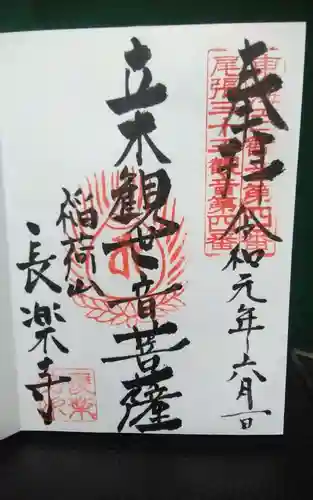 奉拝 令和元年六月一日
尾張三十三観音第四番
立木観世音菩薩
稲荷山
長楽寺